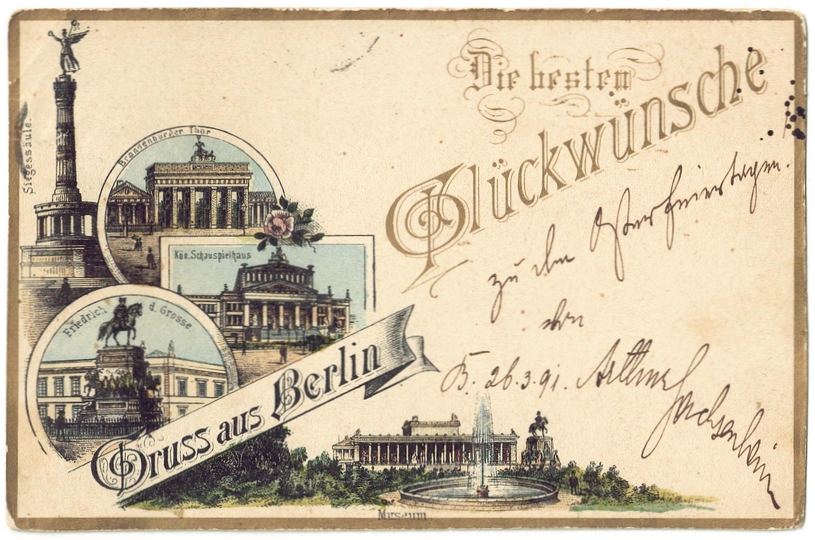 Siegessäule.
Brandenburger Thor
Kön. Schauspielhaus
Friedrich d. Grosse
Gruss aus Berlin
Museum
Die besten
Glückwünsche
zu den Osterfeiertagen.
von
B. 26.3.91. Arthur